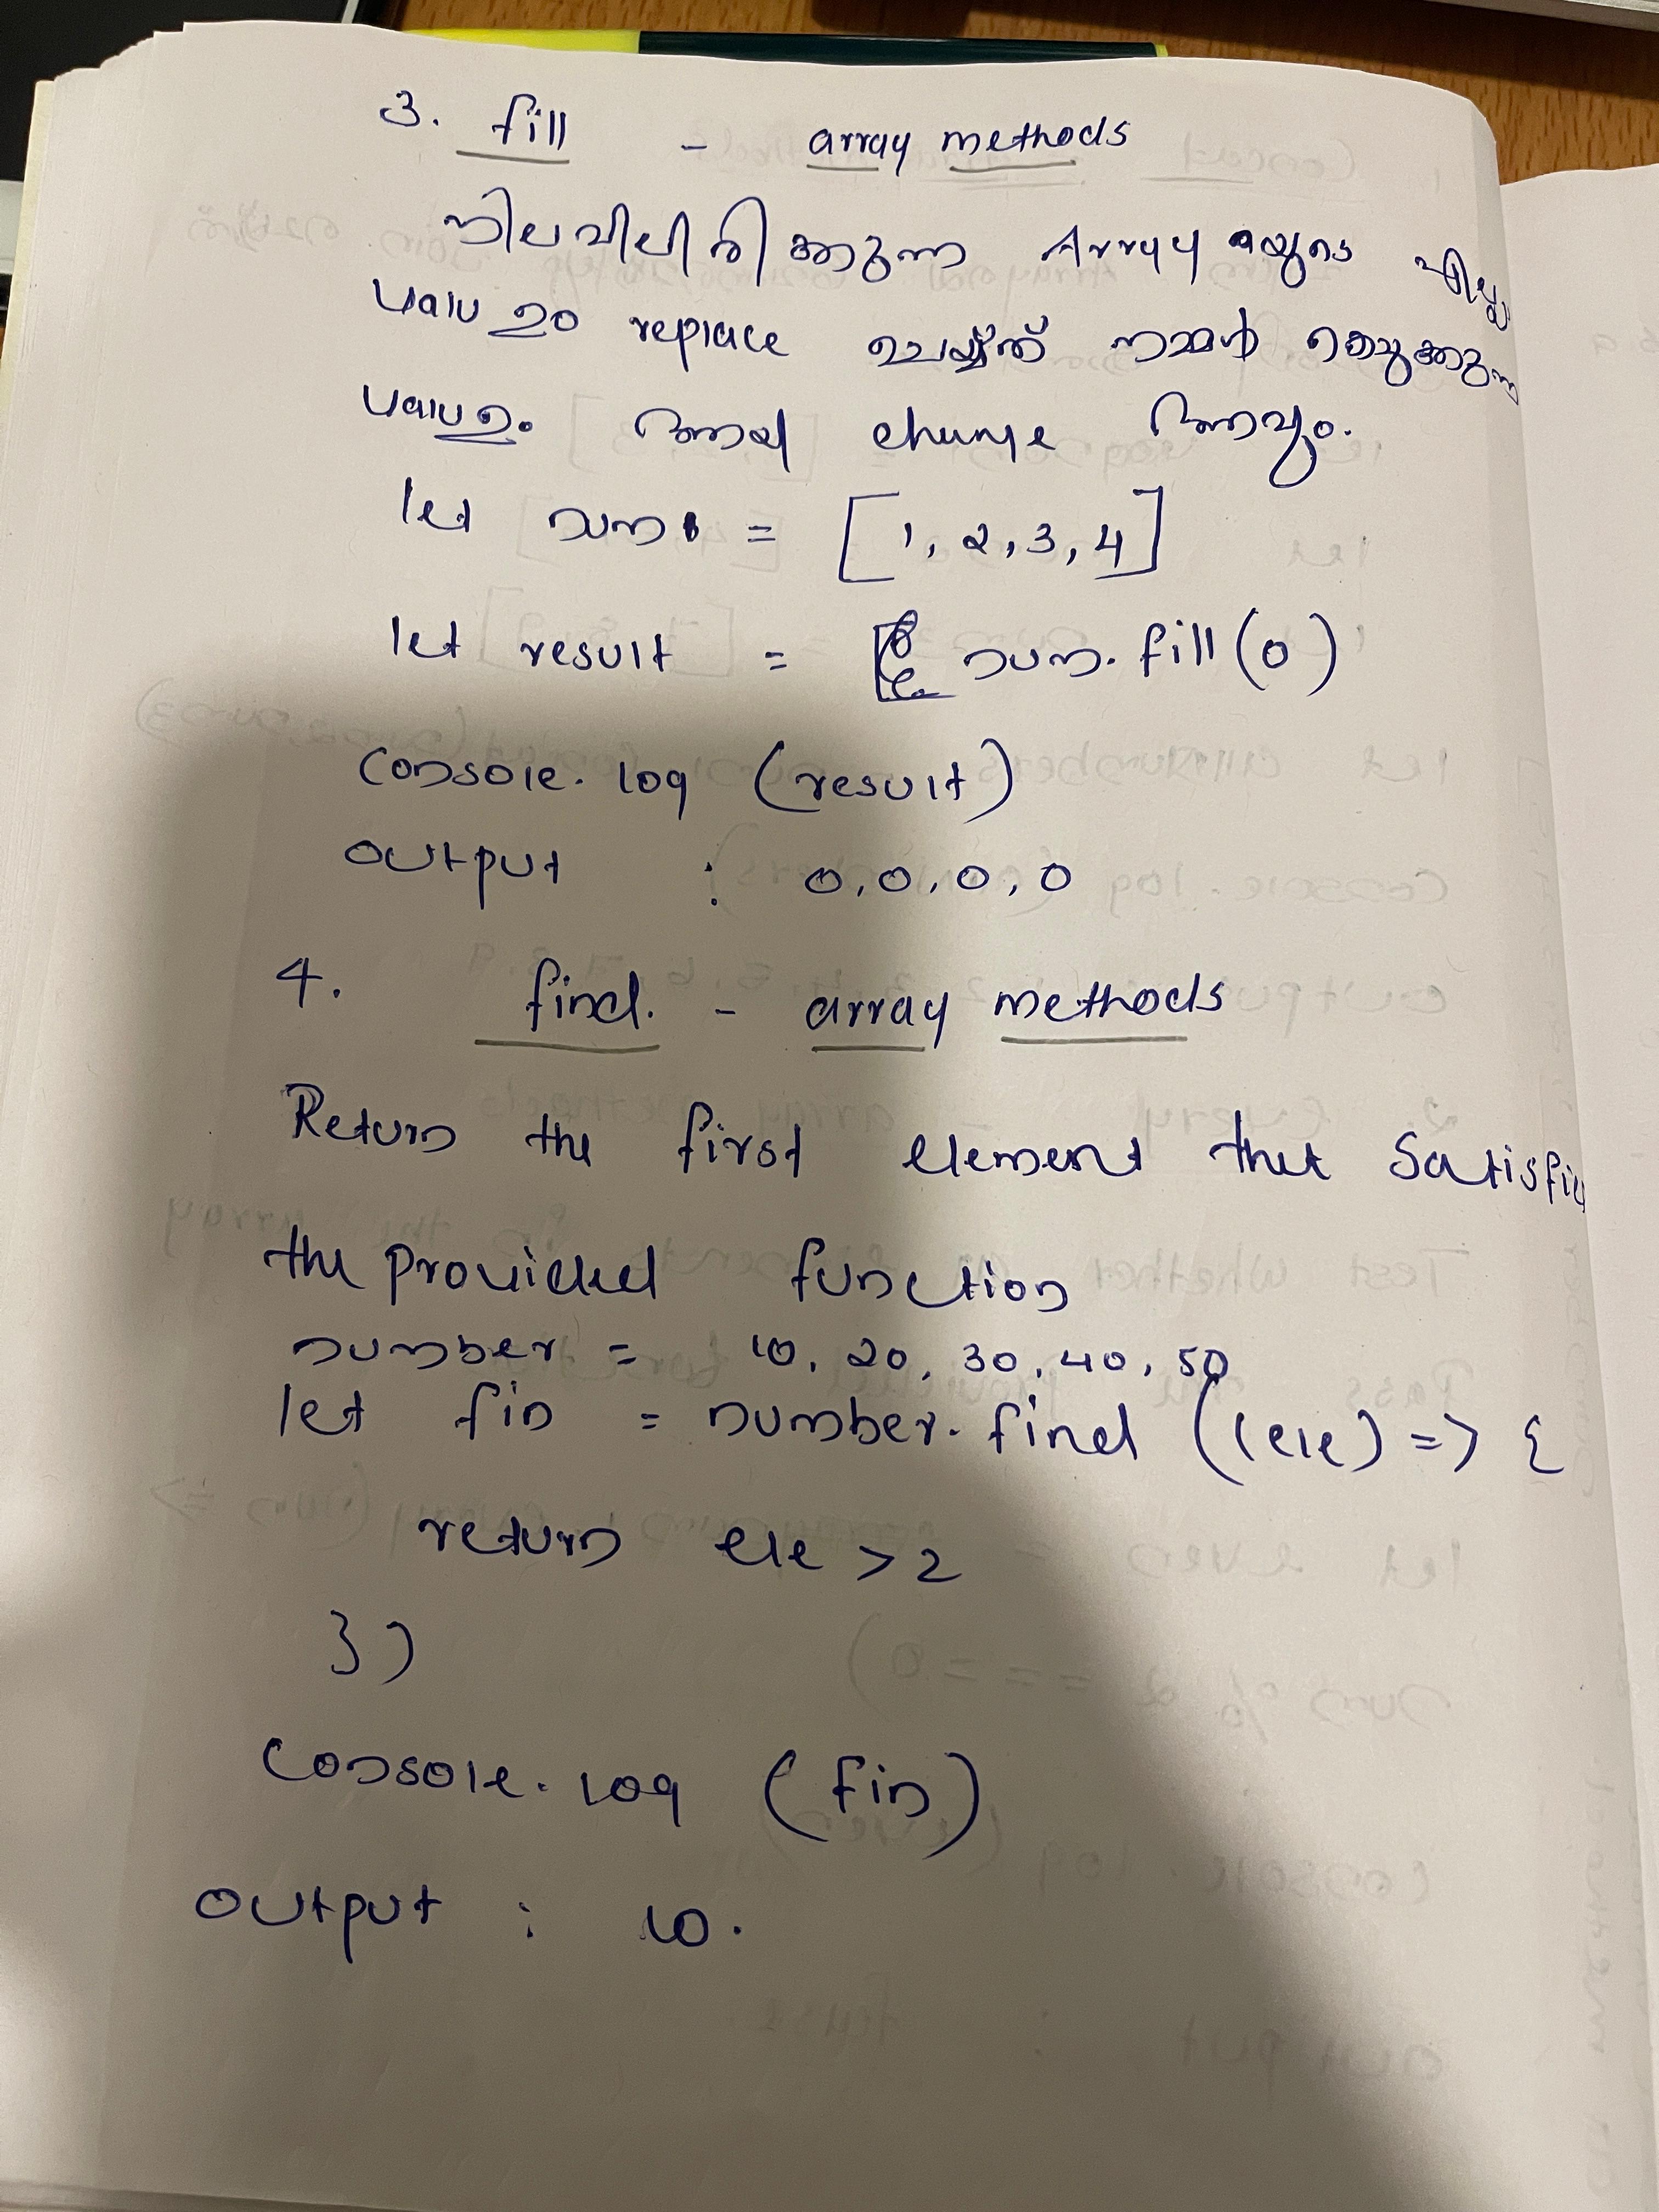 3. fill - array methods
നിലവിലിരിക്കുന്ന Array യുടെ എല്ലാ
value ഉം replace ചെയ്ത് നമ്മൾ കൊടുക്കുന്ന
value ഉം ആയി change ആവും.
let num = [1, 2, 3, 4]
let result = num. fill (0)
console. log (result)
output : 0, 0, 0, 0
4. find. - array methods
Return the first element that satisfies
the provided function
number = 10, 20, 30, 40, 50
let fin = number. find ((ele) => {
return ele > 2
})
console. log (fin)
output : 10.